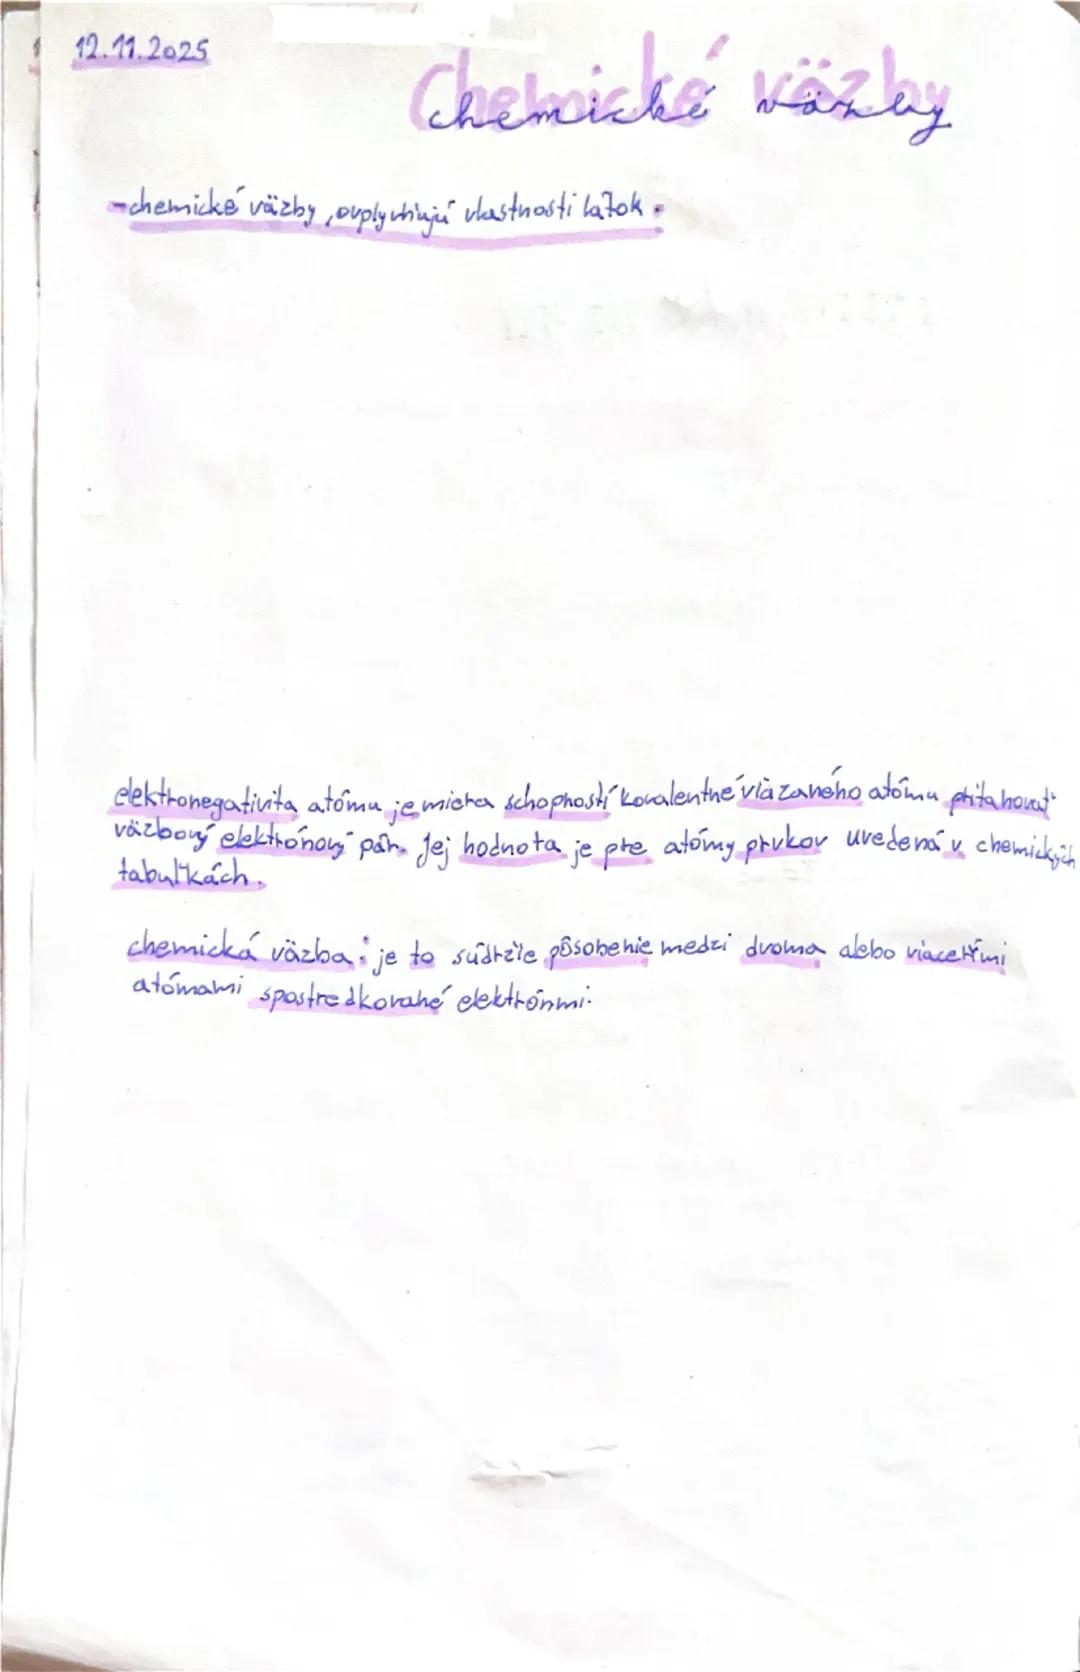 12.11.2025
Chemické väzby
chemické väzby
-chemické väzby, ovplyvňujú vlastnosti látok.
elektronegativita atómu je miera schopnosti kovalentne viazaného atómu priťahovať
väzbový elektrónový pár. Jej hodnota je pre atómy prvkov uvedená v chemických
tabuľkách.
chemická väzba: je to súdržie pôsobenie medzi dvoma alebo viacerými
atómami spostredkované elektrónmi.